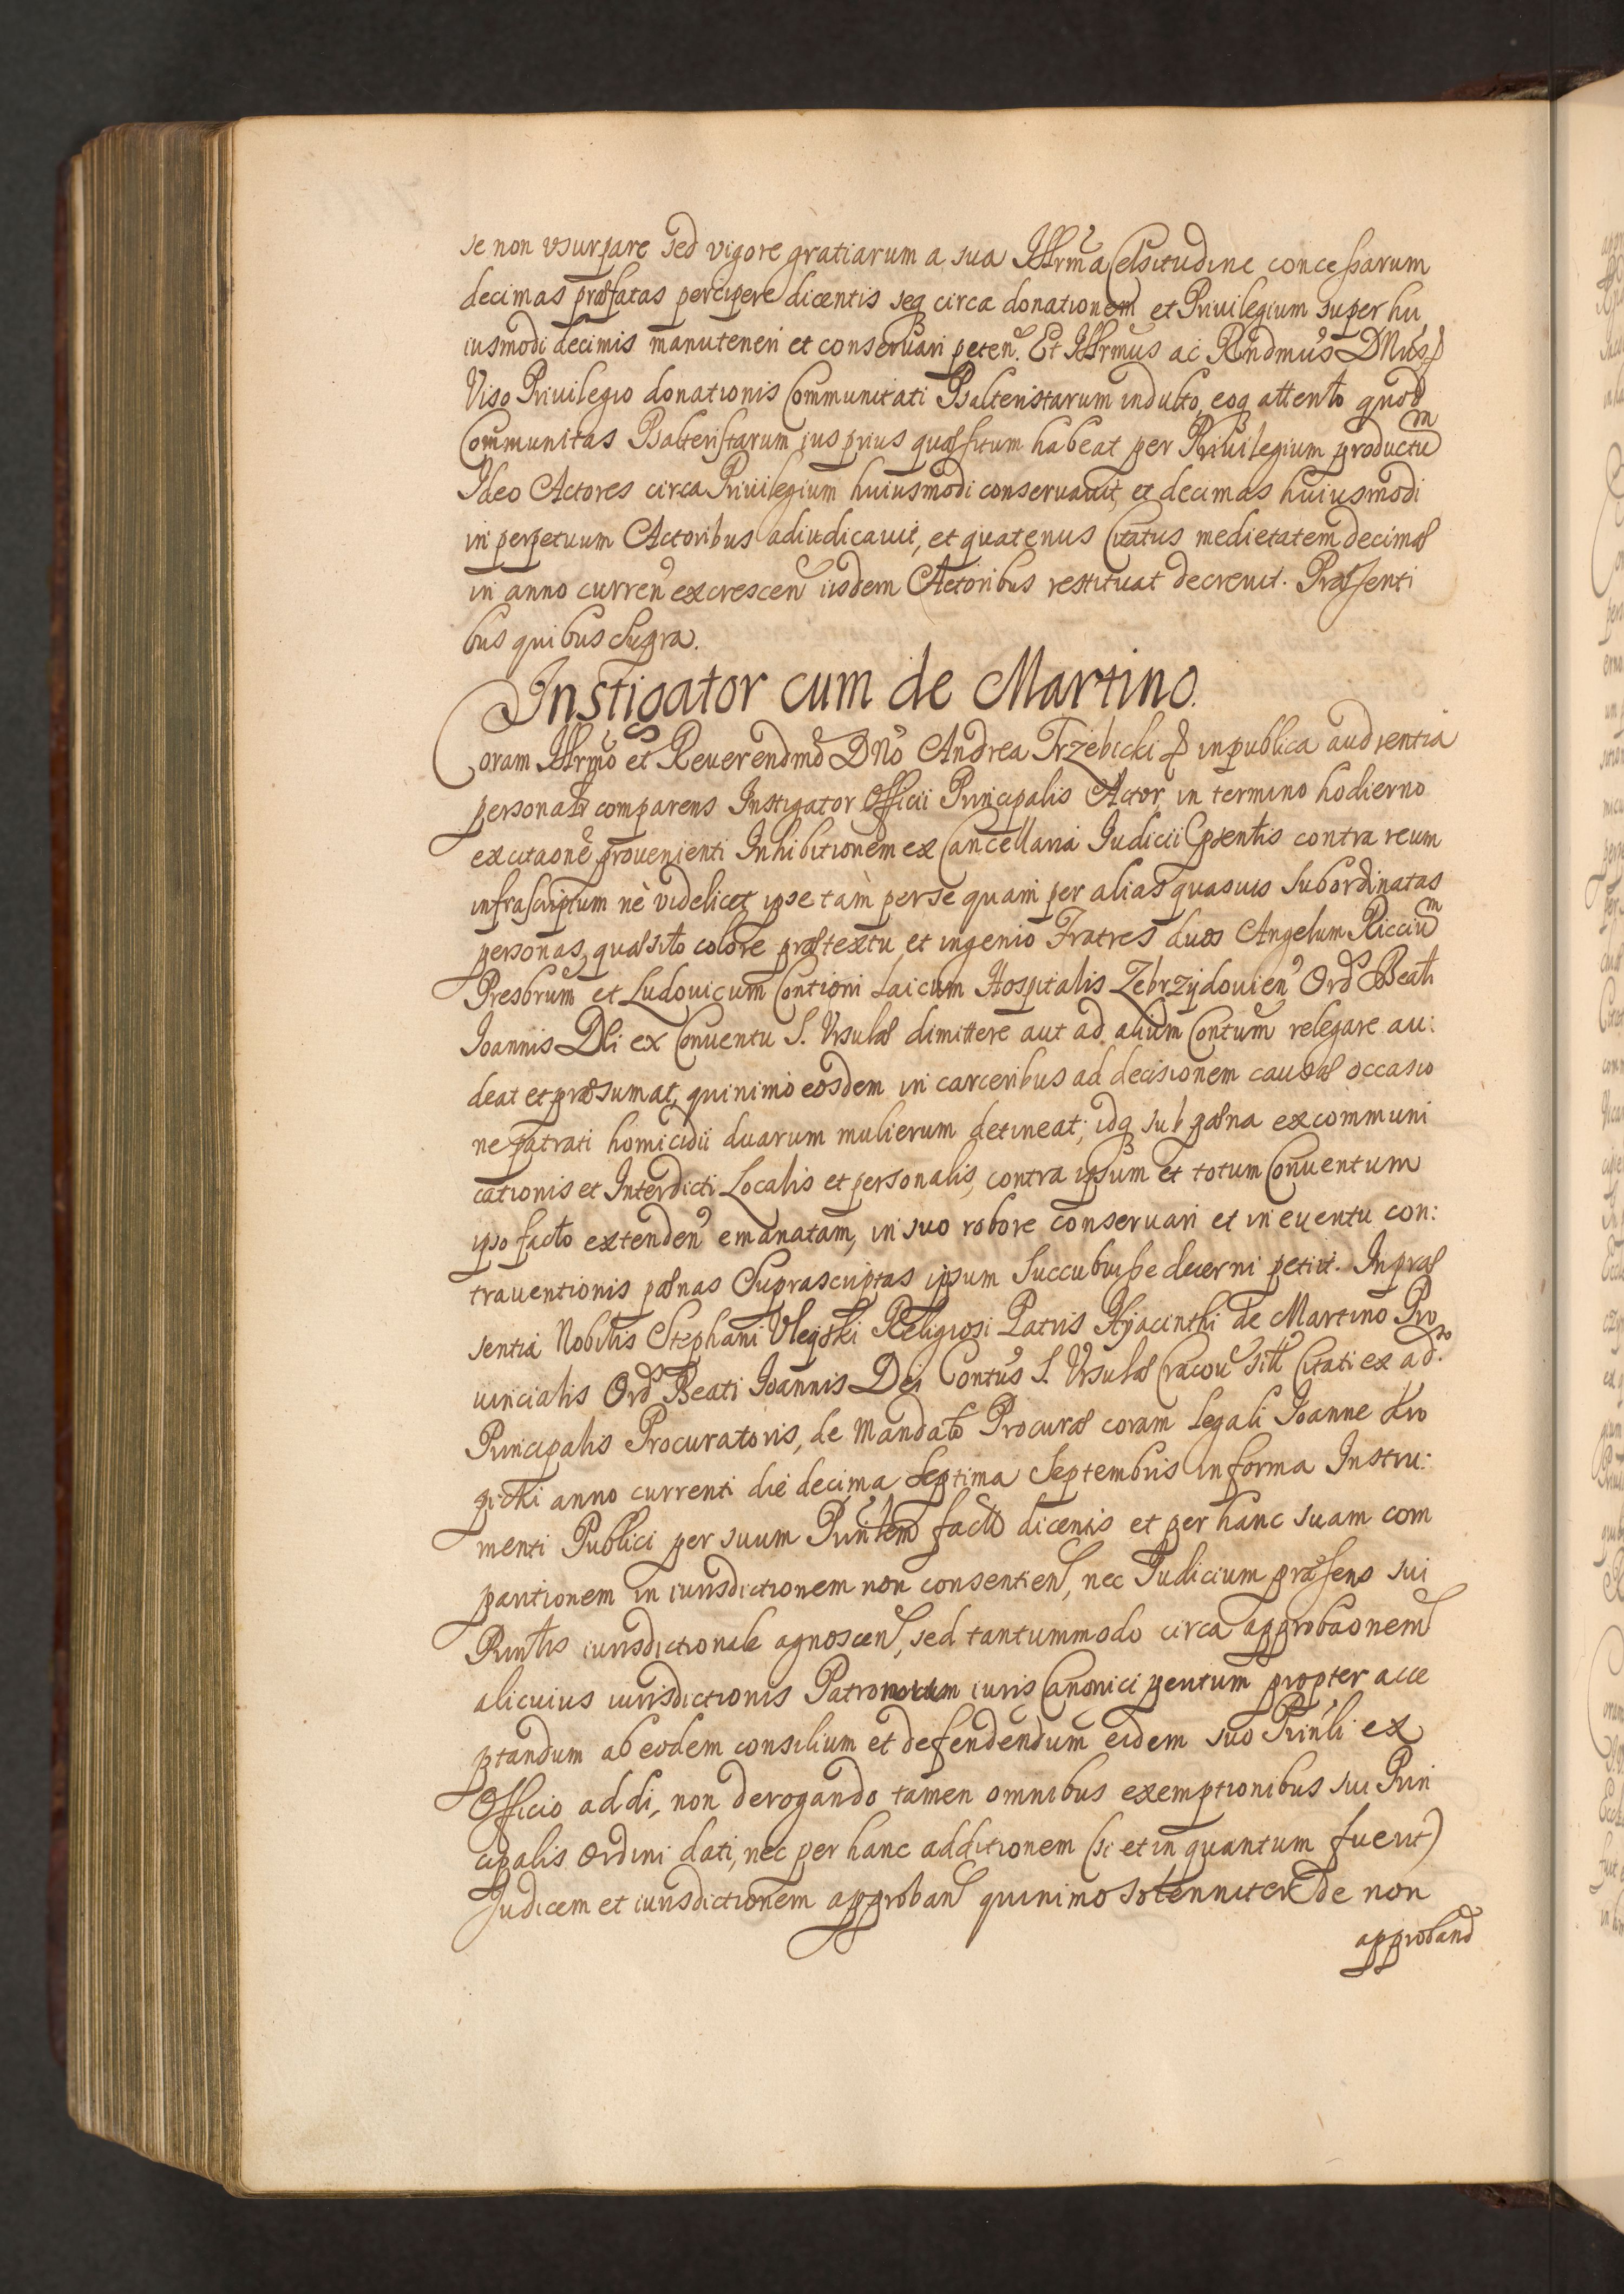 se non vsurpare sed vigore gratiarum a sua Illrma Celsitudine concessarum
decimas præfatas percipere dicentis seq circa donationem et Priuilegium super hu
iusmodi decimis manuteneri et conseruari peten. Et Illrmus ac Rndmus DNus
Viso Priuilegio donationis Communitati Psalteristarum indulto, eoq attento quod
Communitas Psalteristarum ius prius quæsitum habeat per Priuilegium productum
Ideo Actores circa Priuilegium huiusmodi conseruauit, et decimas huiusmodi
in perpetuum Actoribus adiudicauit, et quatenus Citatus medietatem decimæ
in anno curren excrescen iisdem Actoribus restituat decreuit. Præsenti
bus quibus Supra.
Instigator cum de Martino.
Coram Illrmo et Reuerendmo DNo Andrea Trzebicki & in publica audientia
personalr comparens Instigator Officii Principalis Actor, in termino hodierno
ex citaone prouenienti Inhibitionem ex Cancellaria Iudicii Pntis contra reum
infrascriptum nè videlicet ipse tam per se quam per alias quasuis Subordinatas
personas, quæsito colore prætextu et ingenio Fratres duos Angelum Riccium
Presbrum et Ludouicum Contioni Laicum Hospitalis Zebrzydouien Ord Beati
Joannis Dei ex Conuentu S. Vrsulæ dimittere aut ad alium Contum relegare au:
deat et præsumat, quinimo eosdem in carceribus ad decisionem causæ occasio
ne patrati homicidii duarum mulierum detineat, idq sub pæna excommuni
cationis et Interdicti Localis et personalis, contra ipsum et totum Conuentum
ipso facto extenden emanatam, in suo robore conseruari et in euentu con:
trauentionis pænas Suprascriptas ipsum Succubuisse decerni petiit. In præ
sentia Nobilis Stephani Religiosi Patris Hyacinthi de Martino Pro
uincialis Ord Beati Joannis Dei Contus S. Vrsulæ Cracou Citati ex adto
Principalis Procuratoris, de Mandato Procuræ coram Legali Joanne Kro
picki anno currenti die decima Septima Septembris in forma Instru:
menti Publici per suum Prinlem facto dicentis et per hanc suam com
paritionem in iurisdictionem non consentien, nec Iudicium præsens sui
Prinlis iurisdictionale agnoscen, sed tantummodo circa approbaonem
alicuius iurisdictionis Patronorum iuris Canonici peritum propter acce
ptandum ab eodem consilium et defendendum eidem suo Prinli ex
Officio addi, non derogando tamen omnibus exemptionibus sui Prin
cipalis Ordini dati, nec per hanc additionem (si et in quantum fuerit)
Iudicem et iurisdictionem approban quinimo Solenniter de non
approband